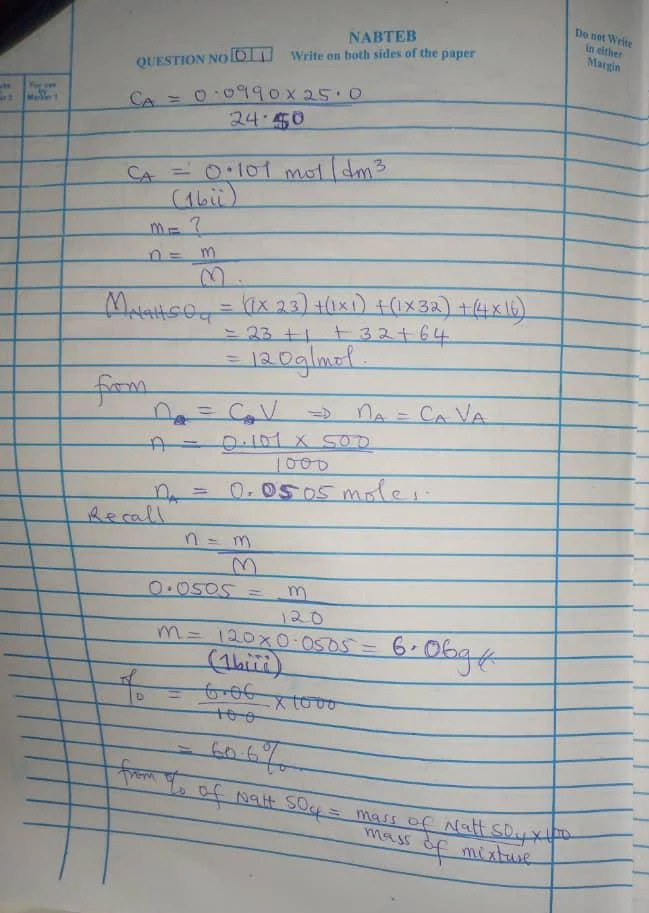 NABTEB
QUESTION NO 01 Write on both sides of the paper
Do not Write
in either
Margin
For use
by
Marker 1
C_A = 0.0990 x 25.0
24.50
C_A = 0.101 mol/dm³
(1bii)
m = ?
n = m
M.
M_NaHSO₄ = (1x23) + (1x1) + (1x32) + (4x16)
= 23 + 1 + 32 + 64
= 120g/mol.
from
n = C V ⇒ n_A = C_A V_A
n = 0.101 x 500
1000
n_A = 0.0505 moles.
Recall
n = m
M
0.0505 = m
120
m = 120 x 0.0505 = 6.06g
(1biii)
% = 6.06 x 1000
100
= 60.6%
from % of NaHSO₄ = mass of NaHSO₄ x 100
mass of mixture